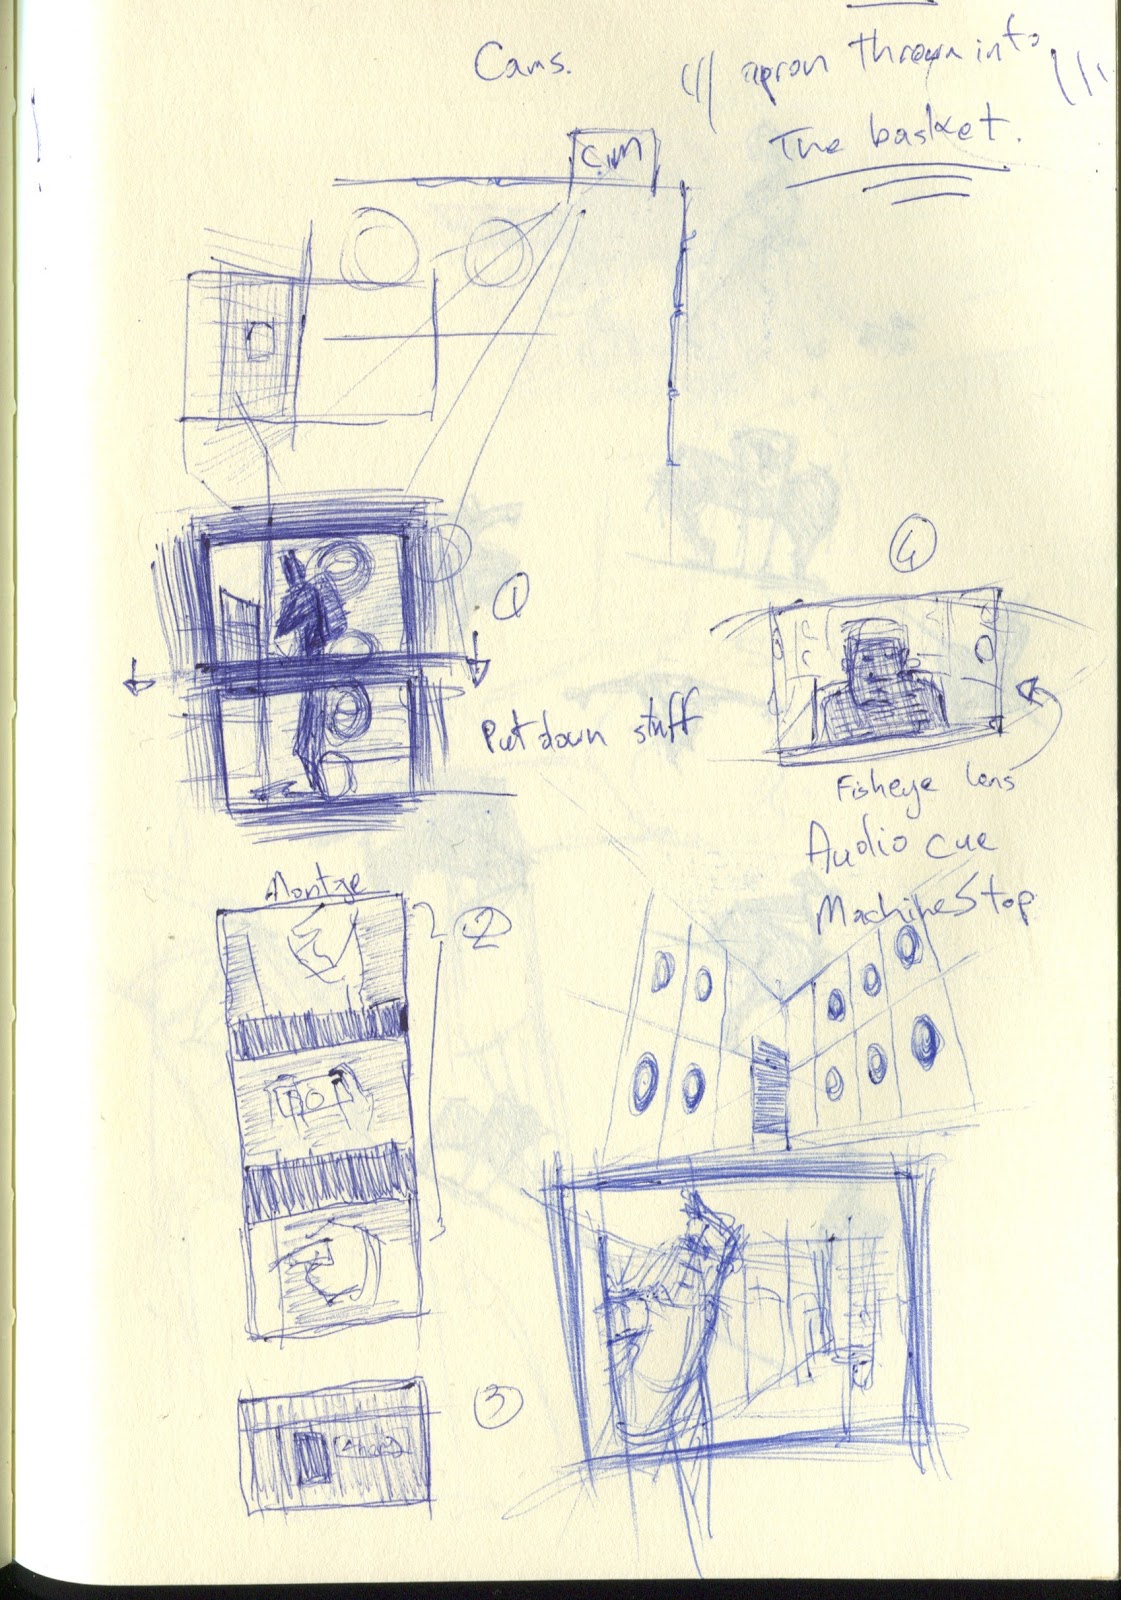 Cams.
apron thrown into
The basket.
CAM
1
Put down stuff
4
Fisheye lens
Audio cue
Machine Stop
Montge
2
3